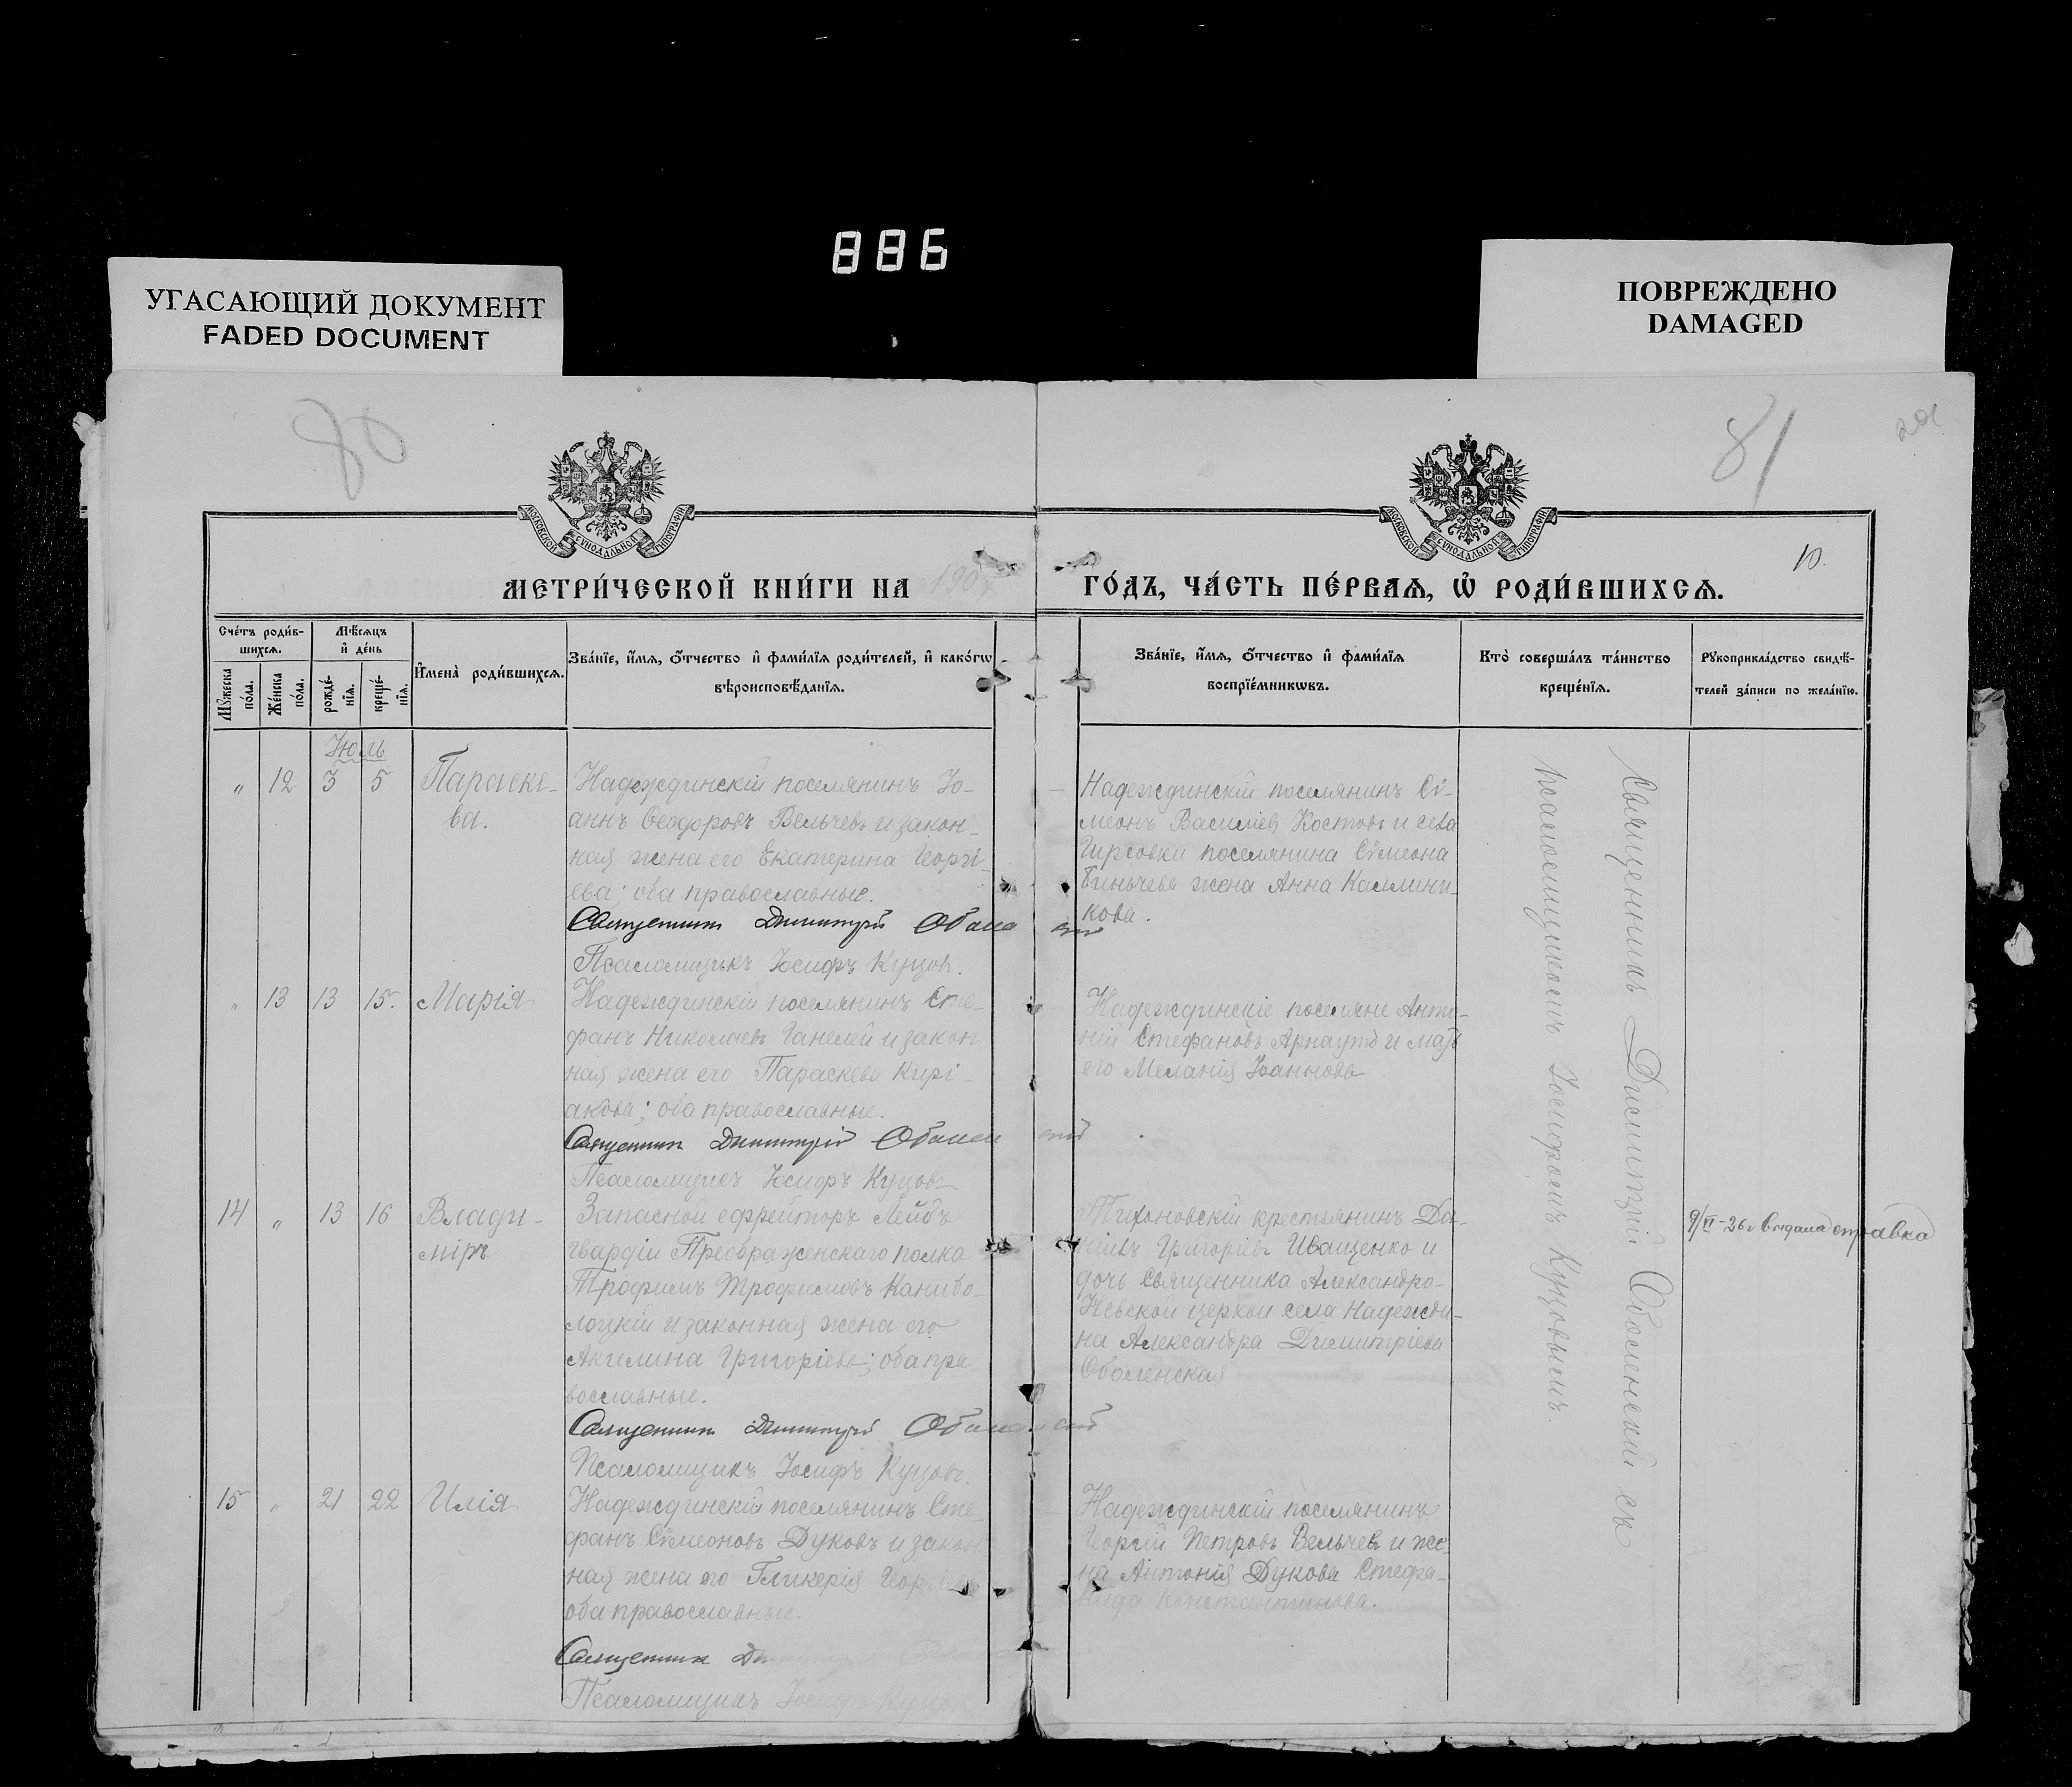 886
УГАСАЮЩИЙ ДОКУМЕНТ
FADED DOCUMENT
ПОВРЕЖДЕНО
DAMAGED
80
81
МОСКОВСКОЙ СѴНОДАЛЬНОЙ ТИПОГРАФІИ
МОСКОВСКОЙ СѴНОДАЛЬНОЙ ТИПОГРАФІИ
10.
МЕТРИ́ЧЕСКОЙ КНИ́ГИ НА 190
ГО́ДЪ, ЧА́СТЬ ПЕ́РВАѦ, Ѡ҆ РОДИ́ВШИХСѦ.
Сче́тъ роди́в-
шихсѧ.
Мꙋжеска
по́ла.
Же́нска
по́ла.
Мѣ́сѧцъ
и҆ де́нь
рожде́-
нїѧ.
креще́-
нїѧ.
И҆мена̀ роди́вшихсѧ.
Зва́нїе, и҆́мѧ, о҆́тчество и҆ фами́лїѧ роди́телей, и҆ како́гѡ
вѣроисповѣ́данїѧ.
Зва́нїе, и҆́мѧ, о҆́тчество и҆ фами́лїѧ
воспрїе́мникѡвъ.
Кто̀ соверша́лъ та́инство
креще́нїѧ.
Рꙋкоприкла́дство свидѣ́-
телей за́писи по жела́нїю.
Іюль
" 12 3 5 Параске-
ва.
Надеждинскій поселянинъ Іо-
аннъ Ѳеодоровъ Вельчевъ и закон-
ная жена его Екатерина Георгі-
ева; оба православные.
Священникъ Димитрій Оболенскій
Псаломщикъ Іосифъ Куцовъ.
Надеждинскій поселянинъ Сѵ-
меонъ Василіевъ Костовъ и села
Гирсовки поселянина Сѵмеона
жена Анна Каллини-
кова.
" 13 13 15. Марія
Надеждинскій поселянинъ Сте-
фанъ Николаевъ Ганелей и закон-
ная жена его Параскева Кирі-
акова; оба православные.
Священникъ Димитрій Оболенскій
Псаломщикъ Іосифъ Куцовъ
Надеждинскіе поселяне Анто-
ній Стефановъ Арнаутъ и мать
его Меланія Іоаннова
14 " 13 16 Влади-
міръ
Запасной ефрейторъ Лейбъ
гвардіи Преображенскаго полка
Трофимъ Трофимовъ Канибо-
лоцкій и законная жена его
Акилина Григоріева; оба пра-
вославные.
Священникъ Димитрій Оболенскій
Псаломщикъ Іосифъ Куцовъ.
Тихоновскій крестьянинъ Да-
ніилъ Григоріевъ Иващенко и
дочь Священника Александро-
Невской церкви села Надежди-
на Александра Димитріева
Оболенская
9/VI-26 г выдана справка
15 " 21 22 Илія
Надеждинскій поселянинъ Сте-
фанъ Сѵмеоновъ Дуковъ и закон-
ная жена его Гликерія Георгіева
оба православные.
Священникъ Димитрій
Псаломщикъ Іосифъ Куцовъ
Надеждинскій поселянинъ
Георгій Петровъ Вельчевъ и же-
на Антонія Дукова Стефа-
нида Константинова.
Священникъ Димитрій Оболенскій съ
псаломщикомъ Іосифомъ Куцовымъ.